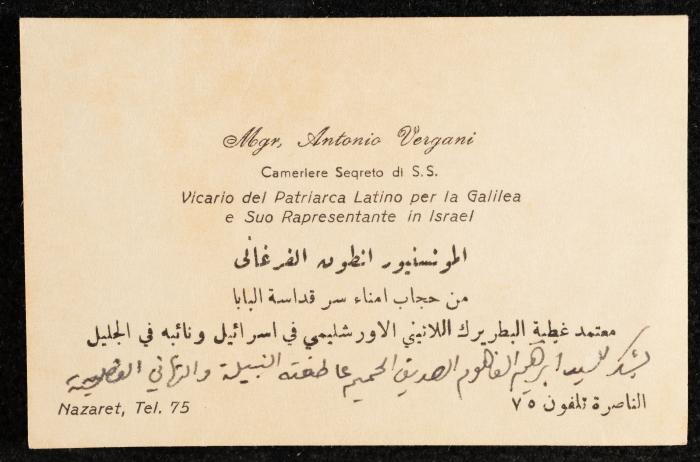 Mgr. Antonio Vergani
Cameriere Segreto di S.S.
Vicario del Patriarca Latino per la Galilea
e Suo Rapresentante in Israel
المونسنيور انطون الفرغاني
من حجاب امناء سر قداسة البابا
معتمد غبطية البطريرك اللاتيني الاورشليمي في اسرائيل ونائبه في الجليل
يشكر للسيد ابرهيم الفاهوم الصديق الحميم عاطفته النبيلة والتهاني القلبية
Nazaret, Tel. 75
الناصرة تلفون ٧٥